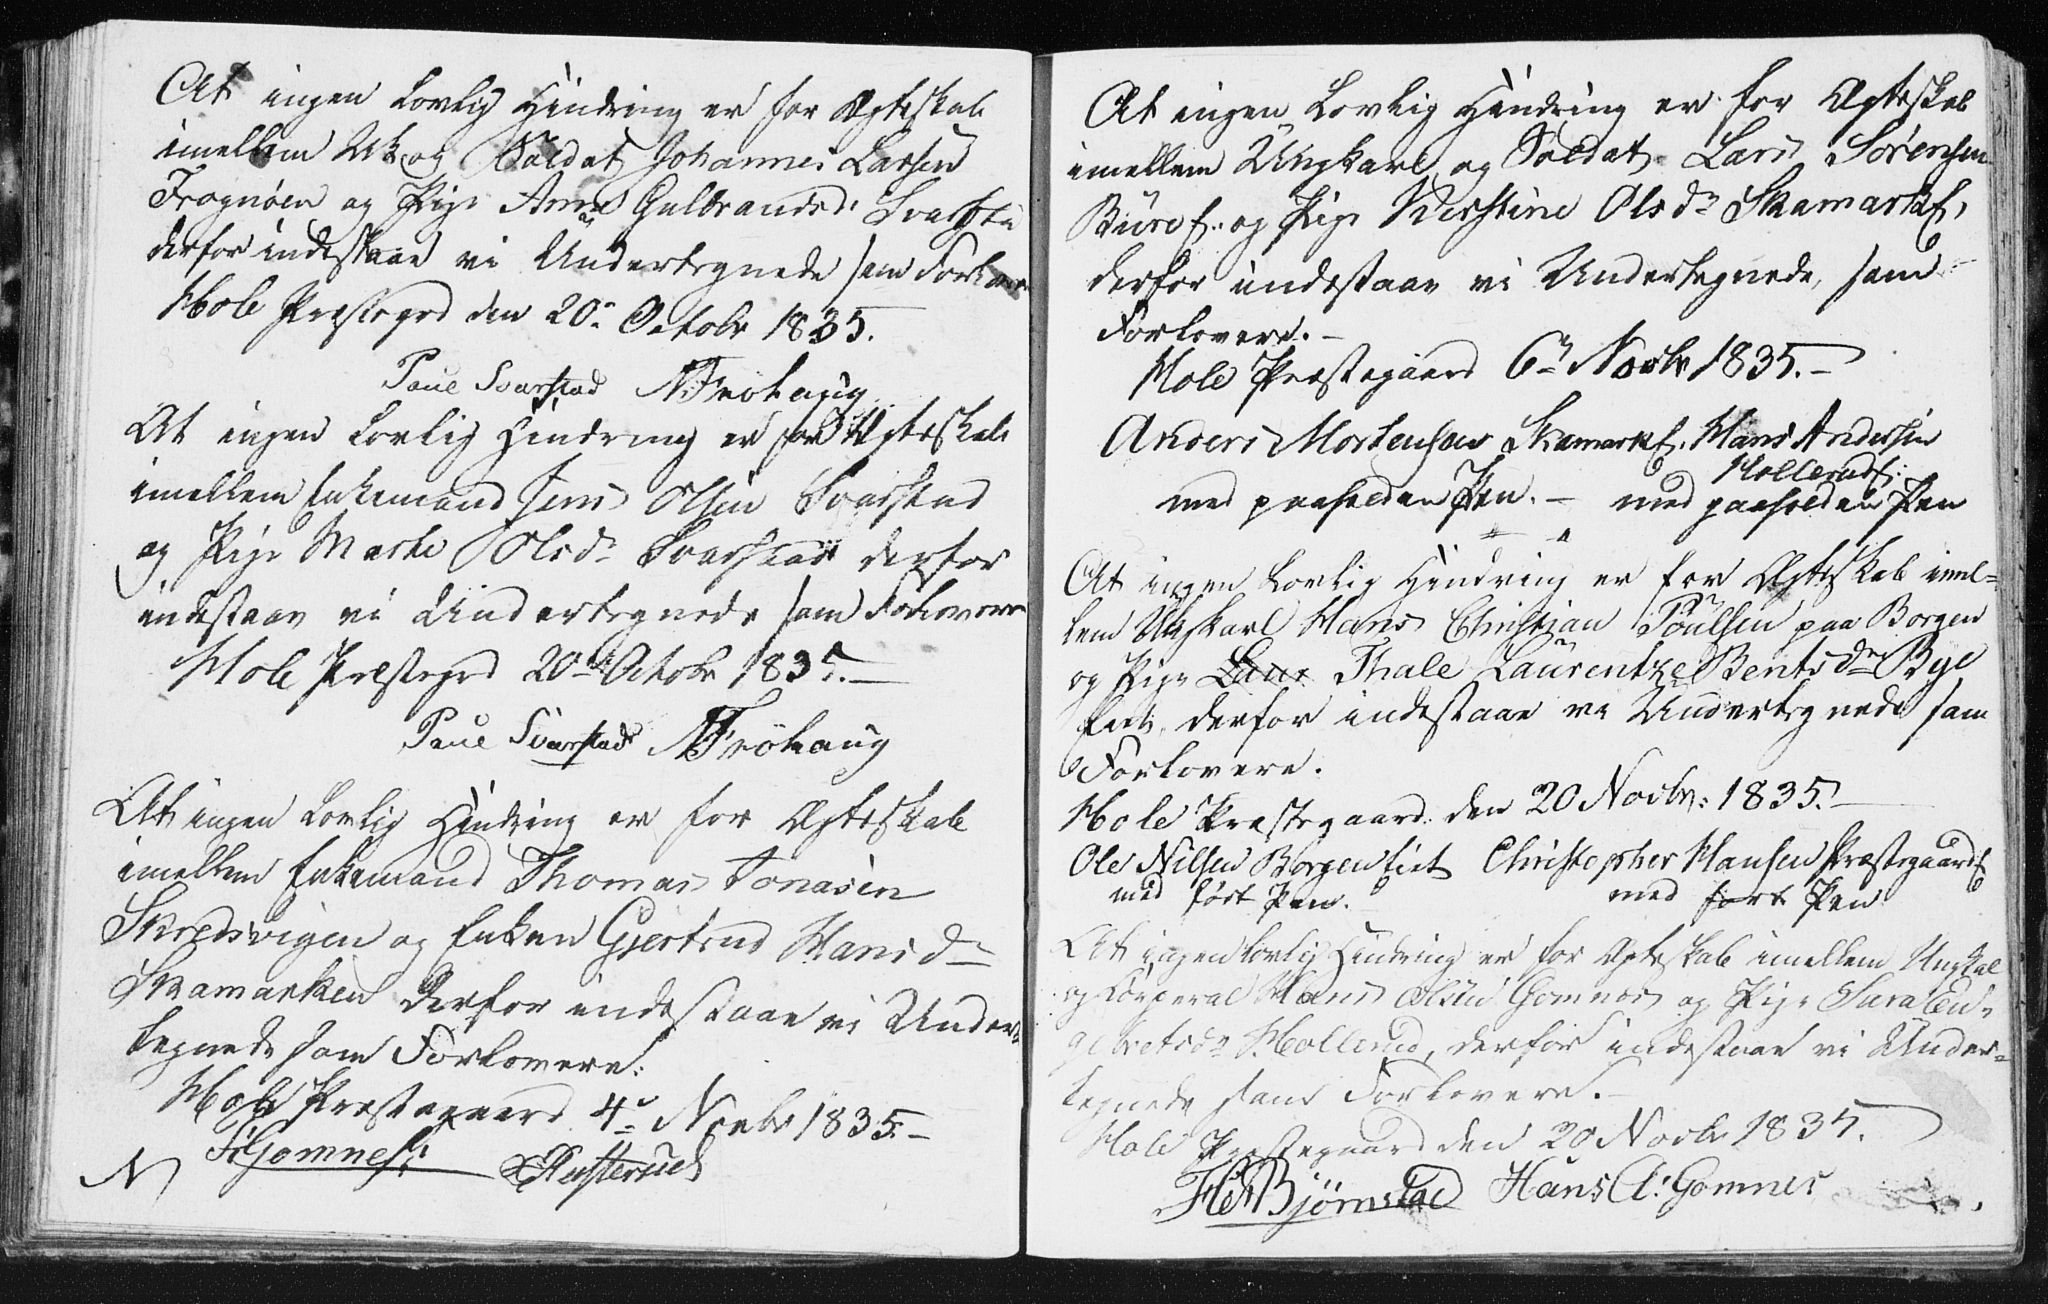 At ingen Lovlig Hindring er for Ægteskab
imellem Uk. og Soldat Johannes Larsen
Frognøen og Pige Anne Gulbrandsd.
derfor indestaae vi Undertegnede som
Hole Præstegrd den 20de Octobr 1835.
Paul Svarstad N. Fröhaug
At ingen Lovlig Hindring er for Ægteskab
imellem Enkemand Jens Olsen Svarstad
og Pige Marthe Olsdr Svarstad derfor
indestaae vi Undertegnede som Forlovere
Hole Præstegrd 20de Octobr 1835.
Paul Svarstad N Fröhaug
At ingen Lovlig Hindring er for Ægteskab
imellem Enkemand Thomas Jonasen
Skredsvigen og Enken Gjertrud Hansdr
Skamarken derfor indestaae vi Under-
tegnede som Forlovere.
Hole Præstegaard 4de Novbr 1835.
Gomnes
N
At ingen Lovlig Hindring er for Ægteskab
imellem Ungkarl og Soldat Lars Sørensen
Büree. og Pige Kirstine Olsdr Skamarke.
derfor indestaae vi Undertegnede, som
Forlovere.
Hole Præstegaard 6te Novbr 1835.
Anders Mortensen Skamarke. Hans Andersen
Mollerude.
med paaholden Pen. med paaholden Pen
At ingen Lovlig Hindring er for Ægteskab imel-
lem Ungkarl Hans Christian Poulsen paa Borgen
og Pige Thale Laurentze Bentsdr Bye
Eiet, derfor indestaae vi Undertegnede som
Forlovere.
Hole Præstegaard. den 20 Novbr: 1835.
Ole Nilsen Borgen Eiet Christopher Hansen Præstegaarde
med ført Pen. med ført Pen
At ingen lovlig Hindring er for Ægteskab imellem Ungkal
og Corperal Hans Olsen Gomnes og Pige Sara En-
gebretsdr Mollerud, derfor indestaae vi Under-
tegnede som Forlovere.
Hole Præstegaard den 20 Novbr 1835.
Bjørnstad Hans A: Gomnes